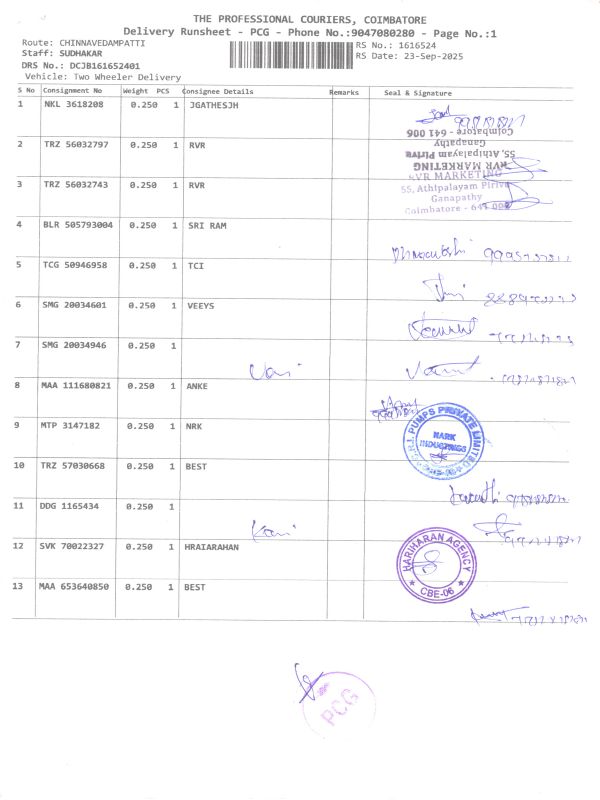 THE PROFESSIONAL COURIERS, COIMBATORE
Delivery Runsheet - PCG - Phone No.:9047080280 - Page No.:1
Route: CHINNAVEDAMPATTI RS No.: 1616524
Staff: SUDHAKAR RS Date: 23-Sep-2025
DRS No.: DCJB161652401
Vehicle: Two Wheeler Delivery
S No Consignment No Weight PCS Consignee Details Remarks Seal & Signature
1 NKL 3618208 0.250 1 JGATHESJH
2 TRZ 56032797 0.250 1 RVR
RVR MARKETING
55, Athipalayam Pirivu
Ganapathy
Coimbatore - 641 006
3 TRZ 56032743 0.250 1 RVR
RVR MARKETING
55, Athipalayam Pirivu
Ganapathy
Coimbatore - 641 006
4 BLR 505793004 0.250 1 SRI RAM
5 TCG 50946958 0.250 1 TCI
6 SMG 20034601 0.250 1 VEEYS
7 SMG 20034946 0.250 1
Vani
8 MAA 111680821 0.250 1 ANKE
9 MTP 3147182 0.250 1 NRK
PUMPS PRIVATE LIMITED
NARK
10 TRZ 57030668 0.250 1 BEST
11 DDG 1165434 0.250 1
Kani
12 SVK 70022327 0.250 1 HRAIARAHAN
HARIHARAN AGENCY
CBE-06
13 MAA 653640850 0.250 1 BEST
PCG